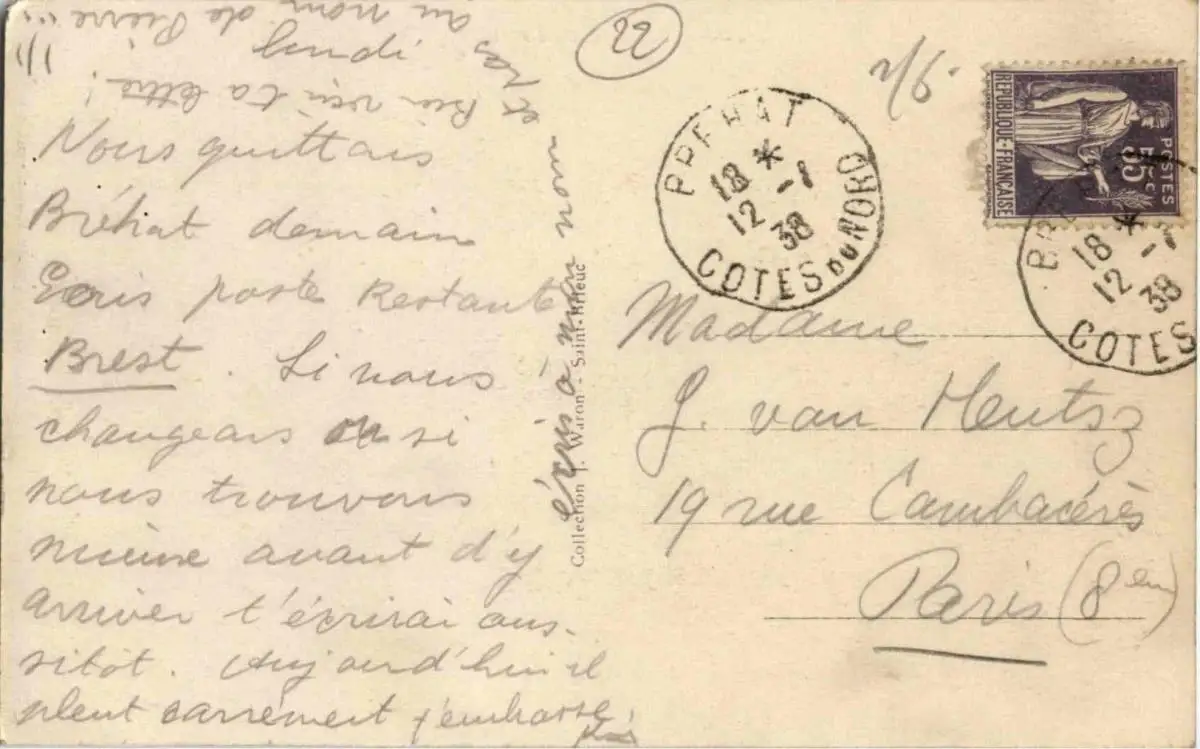 Bien reçu ta lettre !
lundi
Nous quittons
Bréhat demain
Ecris poste Restante
Brest. Si nous
changeons ou si
nous trouvons
mieux avant d'y
arriver t'écrirai aus-
sitôt. Aujourd'hui il
pleut carrément t'embrasse,
écris à mon nom
et pas au nom de Pierre !!!
Collection J. Waron - Saint-Brieuc
22
2/6.
BREHAT
18 *
12 -1
38
COTES DU NORD
REPUBLIQUE-FRANÇAISE
POSTES
55c
BRE
18 *
12 -1
38
COTES
Madame
J. van Heutsz
19 rue Cambacérès
Paris (8em)